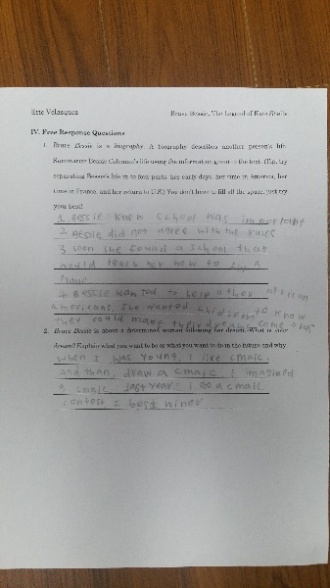 Eric Velasquez
IV. Free Response Questions
1. Brave Bessie is a biography. A biography describes another person's life.
Summarize Bessie Coleman's life using the information given in the text. (Tip, try
separating Bessie's life in to four parts: her early days, her time in America, her
time in France, and her return to U.S.) You don't have to fill all the space, just try
your best!
1 Bessie knew school was important
2 Bessie did not agree with the rules
3 soon she found a school that
would teach her how to fly a
plane
4 Bessie wanted to help other African
Americans. She wanted children to know
they could make their dreams come true
2. Brave Bessie is about a determined woman following her dream. What is your
dream? Explain what you want to be or what you want to do in the future and why.
when I was young, I like cmaic.
and than draw a cmaic I imagined
last year I go a cmaic
contest I best winer